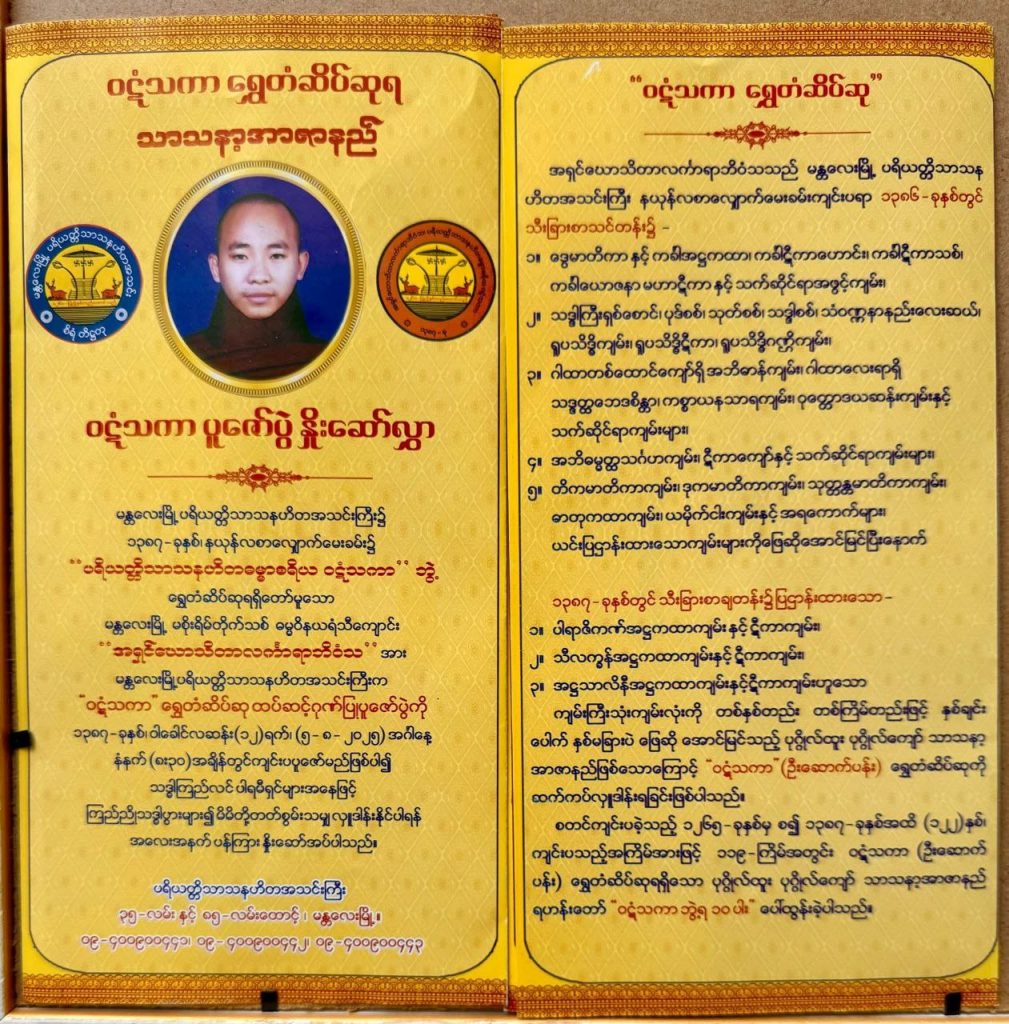 ဝဋံသကာ ရွှေတံဆိပ်ဆုရ
သာသနာ့အာဇာနည်
မန္တလေးမြို့ ပရိယတ္တိသာသနဟိတအသင်း
စိရံ တိဋ္ဌတု
ဝဋံသကာ ပူဇော်ပွဲ နှိုးဆော်လွှာ
မန္တလေးမြို့ ပရိယတ္တိသာသနဟိတအသင်းကြီး၌
၁၃၈၇-ခုနှစ်၊ နယုန်လစာလျှောက်မေးခမ်း၌
"ပရိယတ္တိသာသနဟိတဓမ္မာစရိယ ဝဋံသကာ" ဘွဲ့
ရွှေတံဆိပ်ဆုရရှိတော်မူသော
မန္တလေးမြို့ မစိုးရိမ်တိုက်သစ် ဓမ္မဝိနယရံသီကျောင်း
"အရှင်ယောသိတာလင်္ကာရာဘိဝံသ" အား
မန္တလေးမြို့ ပရိယတ္တိသာသနဟိတအသင်းကြီးက
"ဝဋံသကာ" ရွှေတံဆိပ်ဆု ထပ်ဆင့်ဂုဏ်ပြုပူဇော်ပွဲကို
၁၃၈၇-ခုနှစ်၊ ဝါခေါင်လဆန်း (၁၂) ရက်၊ (၅-၈-၂၀၂၅) အင်္ဂါနေ့
နံနက် (၈း၃၀) အချိန်တွင်ကျင်းပပူဇော်မည်ဖြစ်ပါ၍
သဒ္ဓါကြည်လင် ပါရမီရှင်များအနေဖြင့်
ကြည်ညိုသဒ္ဓါပွားများ၍ မိမိတို့တတ်စွမ်းသမျှ လှူဒါန်းနိုင်ပါရန်
အလေးအနက် ပန်ကြား နှိုးဆော်အပ်ပါသည်။
ပရိယတ္တိသာသနဟိတအသင်းကြီး
၃၅-လမ်း နှင့် ၈၅-လမ်းထောင့်၊ မန္တလေးမြို့။
၀၉-၄၀၀၉၀၀၄၄၁၊ ၀၉-၄၀၀၉၀၀၄၄၂၊ ၀၉-၄၀၀၉၀၀၄၄၃
"ဝဋံသကာ ရွှေတံဆိပ်ဆု"
အရှင်ယောသိတာလင်္ကာရာဘိဝံသသည် မန္တလေးမြို့ ပရိယတ္တိသာသန
ဟိတအသင်းကြီး နယုန်လစာလျှောက်မေးခမ်းကျင်းပရာ ၁၃၈၆-ခုနှစ်တွင်
သီးခြားစာသင်တန်း၌ -
၁။ ဒွေမာတိကာ နှင့် ကင်္ခါအဋ္ဌကထာ၊ ကင်္ခါဋီကာဟောင်း၊ ကင်္ခါဋီကာသစ်၊
ကင်္ခါယောဇနာ မဟာဋီကာ နှင့် သက်ဆိုင်ရာအဖွင့်ကျမ်း၊
၂။ သဒ္ဒါကြီးရှစ်စောင်၊ ပုဒ်စစ်၊ သုတ်စစ်၊ သဒ္ဒါစစ်၊ သံဝဏ္ဏနာနည်းလေးဆယ်၊
ရူပသိဒ္ဓိကျမ်း၊ ရူပသိဒ္ဓိဋီကာ၊ ရူပသိဒ္ဓိဂဏ္ဌိကျမ်း၊
၃။ ဂါထာတစ်ထောင်ကျော်ရှိ အဘိဓာန်ကျမ်း၊ ဂါထာလေးရာရှိ
သဒ္ဒတ္ထဘေဒစိန္တာ၊ ကစ္စာယနသာရကျမ်း၊ ဝုတ္တောဒယဆန်းကျမ်းနှင့်
သက်ဆိုင်ရာကျမ်းများ၊
၄။ အဘိဓမ္မတ္ထသင်္ဂဟကျမ်း၊ ဋီကာကျော်နှင့် သက်ဆိုင်ရာကျမ်းများ၊
၅။ တိကမာတိကာကျမ်း၊ ဒုကမာတိကာကျမ်း၊ သုတ္တန္တမာတိကာကျမ်း၊
ဓာတုကထာကျမ်း၊ ယမိုက်ငါးကျမ်းနှင့် အရကောက်များ၊
ယင်းပြဋ္ဌာန်းထားသောကျမ်းများကိုဖြေဆိုအောင်မြင်ပြီးနောက်
၁၃၈၇-ခုနှစ်တွင် သီးခြားစာချတန်း၌ ပြဋ္ဌာန်းထားသော -
၁။ ပါရာဇိကဏ်အဋ္ဌကထာကျမ်း နှင့် ဋီကာကျမ်း၊
၂။ သီလက္ခန်အဋ္ဌကထာကျမ်းနှင့် ဋီကာကျမ်း၊
၃။ အဋ္ဌသာလိနီအဋ္ဌကထာကျမ်းနှင့်ဋီကာကျမ်းဟူသော
ကျမ်းကြီးသုံးကျမ်းလုံးကို တစ်နှစ်တည်း တစ်ကြိမ်တည်းဖြင့် နှစ်ချင်း
ပေါက် နှစ်မခြားပဲ ဖြေဆို အောင်မြင်သည့် ပုဂ္ဂိုလ်ထူး ပုဂ္ဂိုလ်ကျော် သာသနာ့
အာဇာနည်ဖြစ်သောကြောင့် "ဝဋံသကာ" (ဦးဆောက်ပန်း) ရွှေတံဆိပ်ဆုကို
ဆက်ကပ်လှူဒါန်းရခြင်းဖြစ်ပါသည်။
စတင်ကျင်းပခဲ့သည့် ၁၂၆၅-ခုနှစ်မှ စ၍ ၁၃၈၇-ခုနှစ်အထိ (၁၂၂) နှစ်၊
ကျင်းပသည့်အကြိမ်အားဖြင့် ၁၁၉-ကြိမ်အတွင်း ဝဋံသကာ (ဦးဆောက်
ပန်း) ရွှေတံဆိပ်ဆုရရှိသော ပုဂ္ဂိုလ်ထူး ပုဂ္ဂိုလ်ကျော် သာသနာ့အာဇာနည်
ရဟန်းတော် "ဝဋံသကာ ဘွဲ့ရ ၁၀ ပါး" ပေါ်ထွန်းခဲ့ပါသည်။